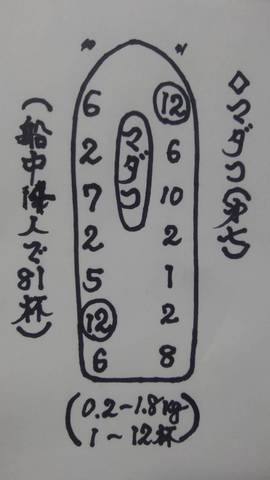 ◇マダコ
マダコ
6 ⑫
2 6
7 10
2 2
5 1
⑫ 2
6 8
(船中14人で81杯)
(0.2~1.8kg
1~12杯)